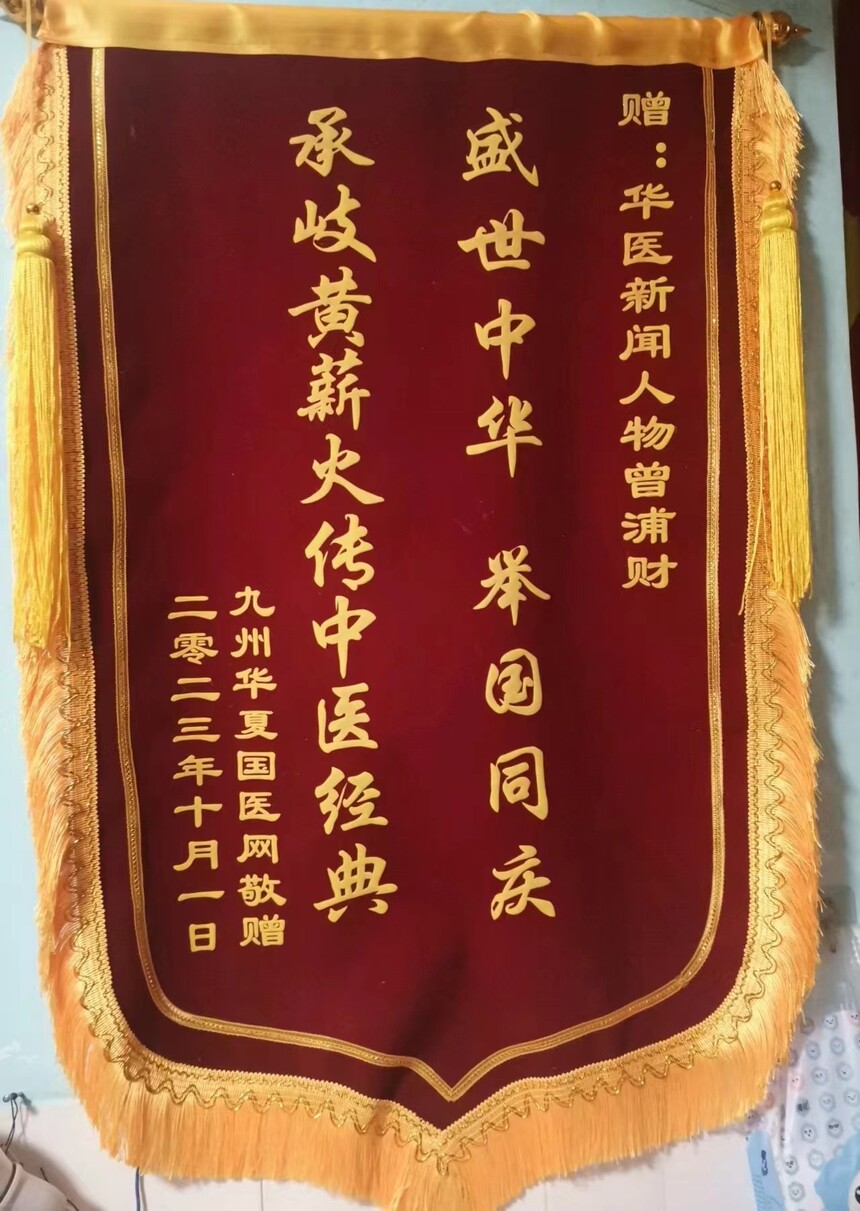 赠：华医新闻人物曾浦财
盛世中华 举国同庆
承岐黄薪火传中医经典
九州华夏国医网敬赠
二零二三年十月一日